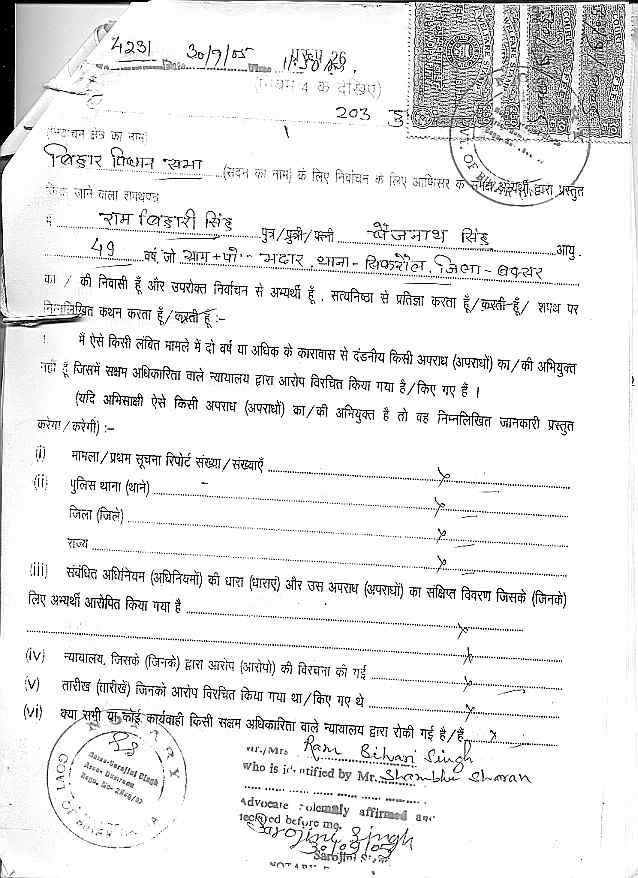 4231 30/9/05 प्ररूप 26
No. Date Time 11:30 A.M.
(नियम 4 क देखिए)
203
का नाम)
बिहार विधान सभा (सदन का नाम) के लिए निर्वाचन के लिए आफिसर के समक्ष अभ्यर्थी द्वारा प्रस्तुत
किया जाने वाला शपथपत्र
मैं राम बिहारी सिंह पुत्र/पुत्री/पत्नी बैजनाथ सिंह आयु
49 वर्ष, जो ग्राम+पो०- भदार, थाना- सिकरौल, जिला- बक्सर
का / की निवासी हूँ और उपरोक्त निर्वाचन से अभ्यर्थी हूँ , सत्यनिष्ठा से प्रतिज्ञा करता हूँ/करती-हूँ/ शपथ पर
निम्नलिखित कथन करता हूँ/करती हूँ :-
में ऐसे किसी लंबित मामले में दो वर्ष या अधिक के कारावास से दंडनीय किसी अपराध (अपराधों) का/की अभियुक्त
नहीं हूँ जिसमें सक्षम अधिकारिता वाले न्यायालय द्वारा आरोप विरचित किया गया है/किए गए हैं ।
(यदि अभिसाक्षी ऐसे किसी अपराध (अपराधों) का/की अभियुक्त है तो वह निम्नलिखित जानकारी प्रस्तुत
करेगा/करेगी) :-
(i) मामला/प्रथम सूचना रिपोर्ट संख्या/संख्याएँ x
(ii) पुलिस थाना (थाने) x
जिला (जिले) x
राज्य x
(iii) संबंधित अधिनियम (अधिनियमों) की धारा (धाराएं) और उस अपराध (अपराधों) का संक्षिप्त विवरण जिसके (जिनके)
लिए अभ्यर्थी आरोपित किया गया है x
(iv) न्यायालय, जिसके (जिनके) द्वारा आरोप (आरोपो) की विरचना की गई x
(v) तारीख (तारीखें) जिनको आरोप विरचित किया गया था/किए गए थे x
(vi) क्या सभी या कोई कार्यवाही किसी सक्षम अधिकारिता वाले न्यायालय द्वारा रोकी गई है/हैं x
NOTARY
Sarojini Singh
GOVT. OF BIHAR
Mr./Mrs Ram Bihari Singh
who is identified by Mr. Shambhu Sharan
Advocate solemnly affirmed and
declared before me.
Sarojini Singh
30/09/05
Sarojini S
NOTARY